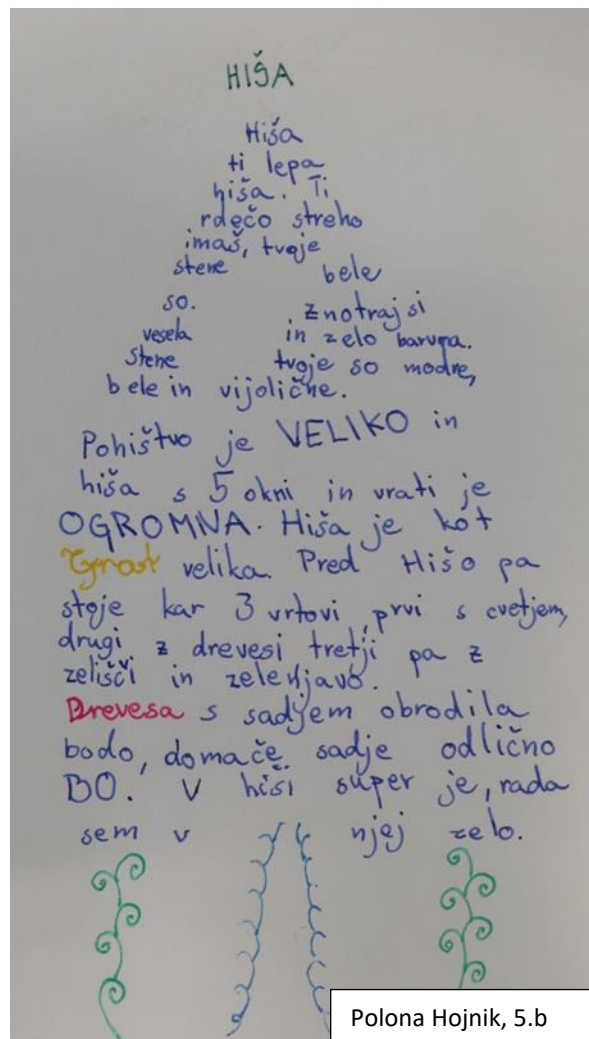 HIŠA
Hiša
ti lepa
hiša. Ti
rdečo streho
imaš, tvoje
stene bele
so. Znotraj si
vesela in zelo barvna.
Stene tvoje so modre,
bele in vijolične.
Pohištvo je VELIKO in
hiša s 5 okni in vrati je
OGROMNA. Hiša je kot
Grad velika. Pred Hišo pa
stoje kar 3 vrtovi, prvi s cvetjem,
drugi z drevesi tretji pa z
zelišči in zelenjavo.
Drevesa s sadjem obrodila
bodo, domače sadje odlično
BO. V hiši super je, rada
sem v njej zelo.
Polona Hojnik, 5.b